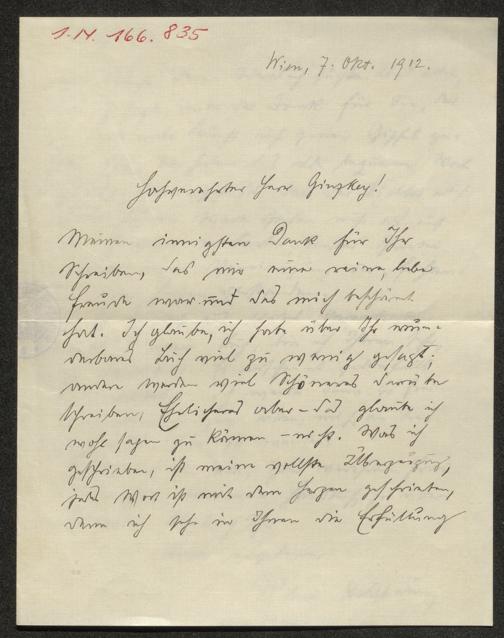 I.N. 166.835
Wien, 7. Okt. 1912.
Hochverehrter Herr Ginzkey!
Meinen innigsten Dank für Ihr
Schreiben, das mir eine reine, liebe
Freude war und das mich beschämt
hat. Ich glaube, ich habe über Ihr wun-
derbares Buch viel zu wenig gesagt,
andere werden viel Schöneres darüber
schreiben, Ehrlicheres aber – das glaube ich
wohl sagen zu können – nicht. Was ich
geschrieben, ist meine vollste Überzeugung,
jedes Wort ist mit dem Herzen geschrieben,
denn ich sehe in Ihnen die Erfüllung